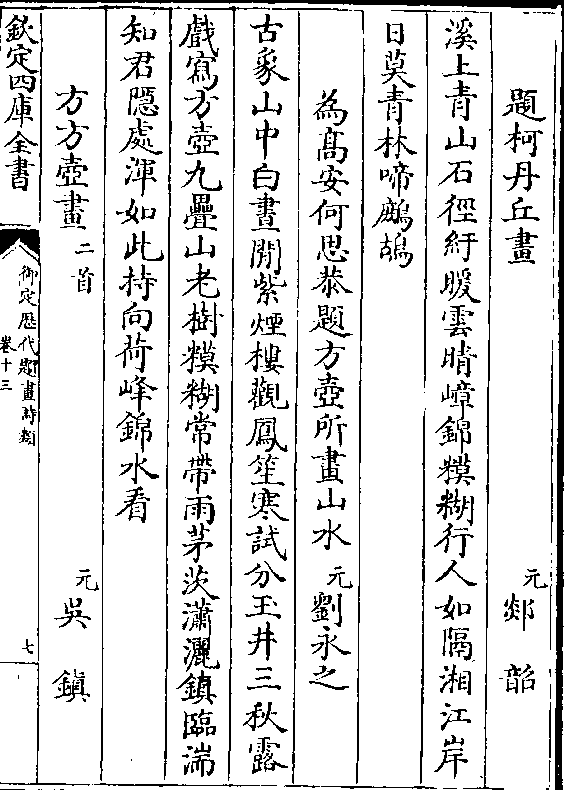 題柯丹丘畫
元郯韶
溪上青山石徑紆暖雲晴嶂錦糢糊行人如隔湘江岸
日莫青林啼鷓鴣
為髙安何思恭題方壺所畫山水
元劉永之
古象山中白晝閒紫煙樓觀鳳笙寒試分玉井三秋露
戲寫方壺九疊山老樹糢糊常帶雨茅茨瀟灑鎮臨湍
知君隱處渾如此持向荷峰錦水看
方方壺畫二首
元吳鎮
欽定四庫全書
御定歴代題畫詩類
卷十三
七